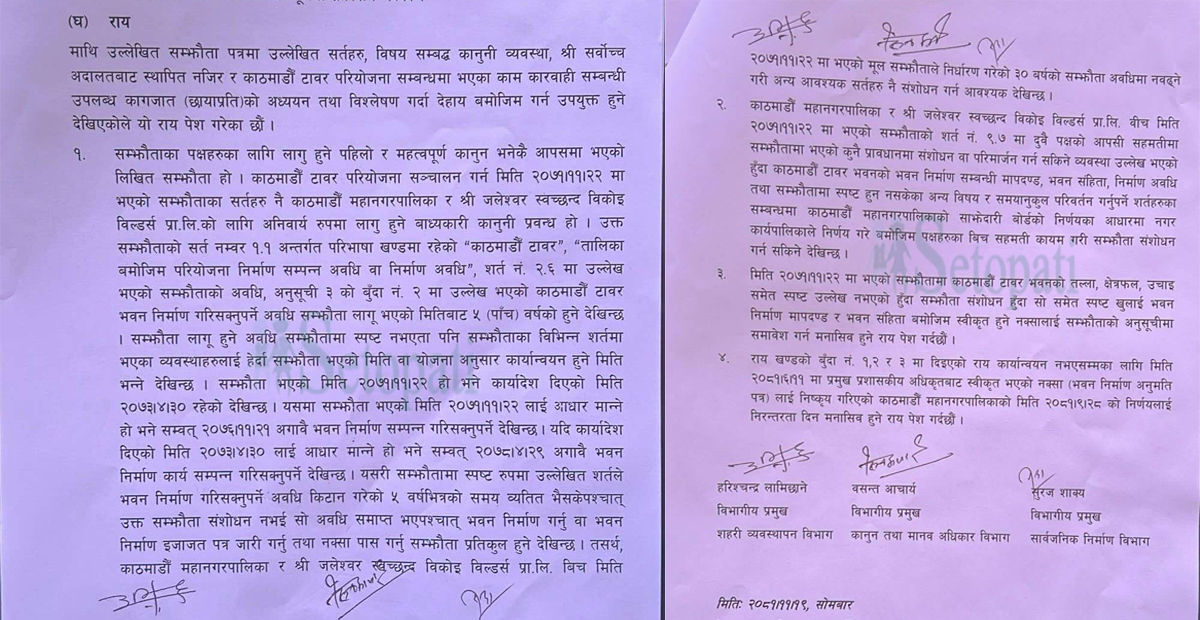 (घ) राय
माथि उल्लेखित सम्झौता पत्रमा उल्लेखित सर्तहरु, विषय सम्बद्ध कानुनी व्यवस्था, श्री सर्वोच्च
अदालतबाट स्थापित नजिर र काठमाडौं टावर परियोजना सम्बन्धमा भएका काम कारवाही सम्बन्धी
उपलब्ध कागजात (छायाप्रति)को अध्ययन तथा विश्लेषण गर्दा देहाय बमोजिम गर्न उपयुक्त हुने
देखिएकोले यो राय पेश गरेका छौं ।
१. सम्झौताका पक्षहरुका लागि लागु हुने पहिलो र महत्वपूर्ण कानुन भनेकै आपसमा भएको
लिखित सम्झौता हो । काठमाडौं टावर परियोजना सञ्चालन गर्न मिति २०७१।११।२२ मा
भएको सम्झौताका सर्तहरु नै काठमाडौं महानगरपालिका र श्री जलेश्वर स्वच्छन्द विकोइ
विल्डर्स प्रा.लि.को लागि अनिवार्य रुपमा लागु हुने बाध्यकारी कानुनी प्रवन्ध हो । उक्त
सम्झौताको सर्त नम्वर १.१ अन्तर्गत परिभाषा खण्डमा रहेको “काठमाडौं टावर”, “तालिका
बमोजिम परियोजना निर्माण सम्पन्न अवधि वा निर्माण अवधि”, शर्त नं. २.६ मा उल्लेख
भएको सम्झौताको अवधि, अनुसूची ३ को बुँदा नं. २ मा उल्लेख भएको काठमाडौं टावर
भवन निर्माण गरिसक्नुपर्ने अवधि सम्झौता लागू भएको मितिबाट ५ (पाँच) वर्षको हुने देखिन्छ
। सम्झौता लागू हुने अवधि सम्झौतामा स्पष्ट नभएता पनि सम्झौताका विभिन्न शर्तमा
भएका व्यवस्थाहरुलाई हेर्दा सम्झौता भएको मिति वा योजना अनुसार कार्यान्वयन हुने मिति
भन्ने देखिन्छ । सम्झौता भएको मिति २०७१।११।२२ हो भने कार्यादेश दिएको मिति
२०७३।४।३० रहेको देखिन्छ । यसमा सम्झौता भएको मिति २०७१।११।२२ लाई आधार मान्ने
हो भने सम्वत् २०७६।११।२१ अगावै भवन निर्माण सम्पन्न गरिसक्नुपर्ने देखिन्छ । यदि कार्यादेश
दिएको मिति २०७३।४।३० लाई आधार मान्ने हो भने सम्वत् २०७८।४।२९ अगावै भवन
निर्माण कार्य सम्पन्न गरिसक्नुपर्ने देखिन्छ । यसरी सम्झौतामा स्पष्ट रुपमा उल्लेखित शर्तले
भवन निर्माण गरिसक्नुपर्ने अवधि किटान गरेको ५ वर्षभित्रको समय व्यतित भैसकेपश्चात्
उक्त सम्झौता संशोधन नभई सो अवधि समाप्त भएपश्चात् भवन निर्माण गर्नु वा भवन
निर्माण इजाजत पत्र जारी गर्नु तथा नक्सा पास गर्नु सम्झौता प्रतिकुल हुने देखिन्छ । तसर्थ,
काठमाडौं महानगरपालिका र श्री जलेश्वर स्वच्छन्द विकोइ विल्डर्स प्रा.लि. बिच मिति
२०७१।११।२२ मा भएको मूल सम्झौताले निर्धारण गरेको ३० बर्षको सम्झौता अवधिमा नवढ्ने
गरी अन्य आवश्यक सर्तहरु नै संशोधन गर्न आवश्यक देखिन्छ ।
२. काठमाडौं महानगरपालिका र श्री जलेश्वर स्वच्छन्द विकोइ विल्डर्स प्रा.लि. वीच मिति
२०७१।११।२२ मा भएको सम्झौताको शर्त नं. ९.७ मा दुवै पक्षको आपसी सहमतीमा
सम्झौतामा भएको कुनै प्रावधानमा संशोधन वा परिमार्जन गर्न सकिने व्यवस्था उल्लेख भएको
हुँदा काठमाडौं टावर भवनको भवन निर्माण सम्बन्धी मापदण्ड, भवन संहिता, निर्माण अवधि
तथा सम्झौतामा स्पष्ट हुन नसकेका अन्य विषय र समयानुकुल परिवर्तन गर्नुपर्ने शर्तहरुका
सम्बन्धमा काठमाडौं महानगरपालिकाको साझेदारी बोर्डको निर्णयका आधारमा नगर
कार्यपालिकाले निर्णय गरे बमोजिम पक्षहरुका बिच सहमती कायम गरी सम्झौता संशोधन
गर्न सकिने देखिन्छ ।
३. मिति २०७१।११।२२ मा भएको सम्झौतामा काठमाडौं टावर भवनको तल्ला, क्षेत्रफल, उचाइ
समेत स्पष्ट उल्लेख नभएको हुँदा सम्झौता संशोधन हुँदा सो समेत स्पष्ट खुलाई भवन
निर्माण मापदण्ड र भवन संहिता बमोजिम स्वीकृत हुने नक्सालाई सम्झौताको अनुसूचीमा
समावेश गर्न मनासिव हुने राय पेश गर्दछौं ।
४. राय खण्डको बुँदा नं. १,२ र ३ मा दिइएको राय कार्यान्वयन नभएसम्मका लागि मिति
२०८१।६।११ मा प्रमुख प्रशासकीय अधिकृतबाट स्वीकृत भएको नक्सा (भवन निर्माण अनुमति
पत्र) लाई निष्कृय गरिएको काठमाडौं महानगरपालिकाको मिति २०८१।९।२८ को निर्णयलाई
निरन्तरता दिन मनासिब हुने राय पेश गर्दछौं ।
हरिश्चन्द्र लामिछाने वसन्त आचार्य सुरज शाक्य
विभागीय प्रमुख विभागीय प्रमुख विभागीय प्रमुख
शहरी व्यवस्थापन विभाग कानुन तथा मानव अधिकार विभाग सार्वजनिक निर्माण विभाग
मितिः २०८१।११।१९, सोमबार
Setopati
Setopati